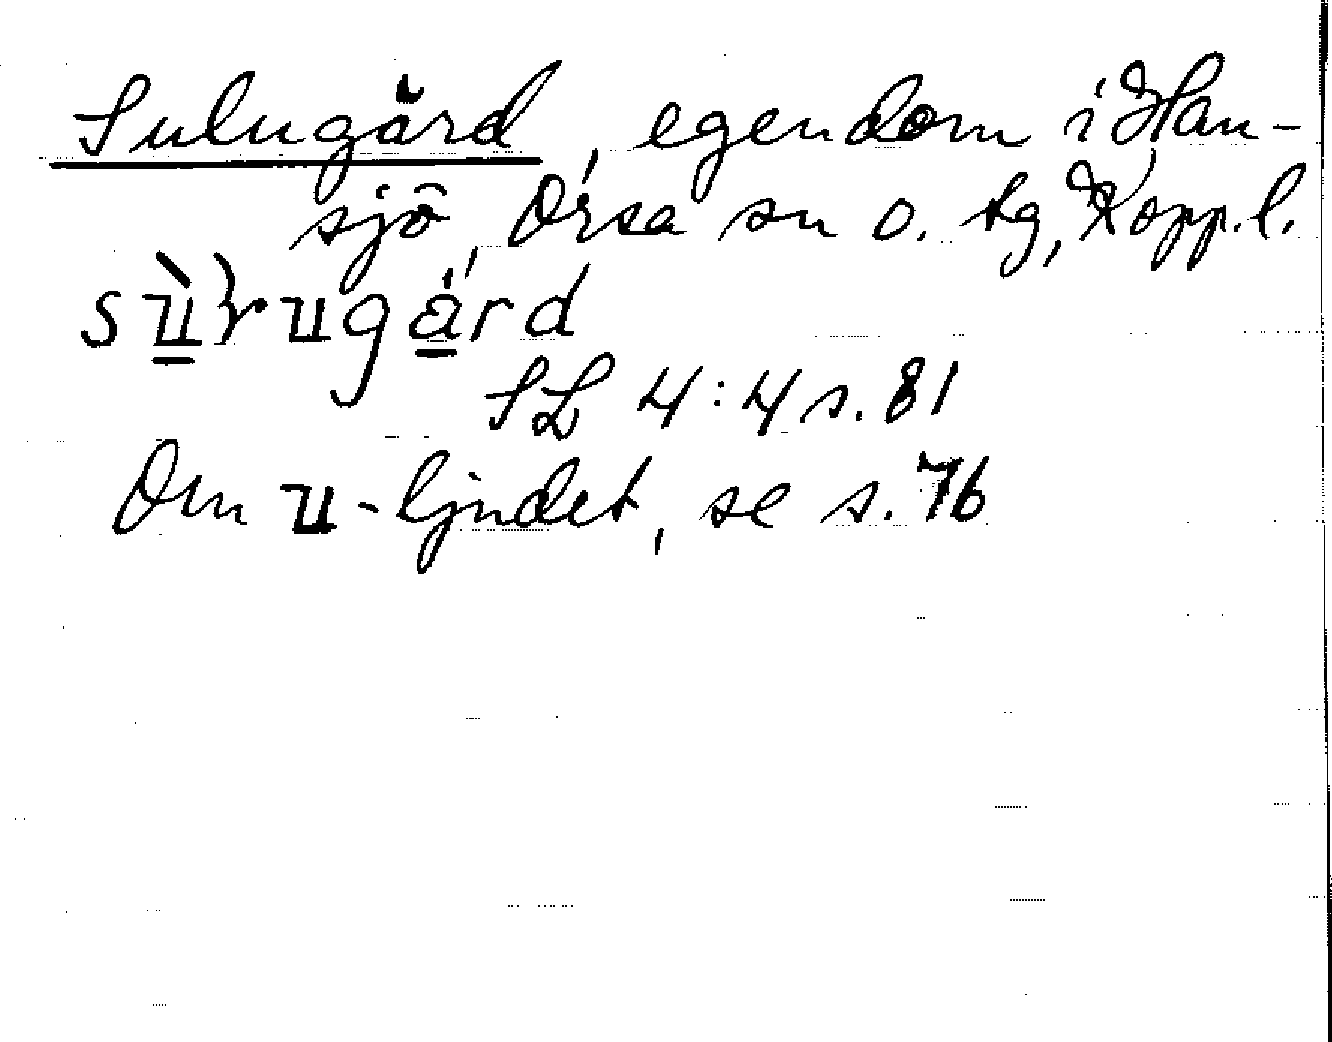 Sulugård, egendom i Han-
sjö, Orsa sn o. tg, Kopp.l.
SL 4:4 s. 81
Om u-ljudet, se s. 76